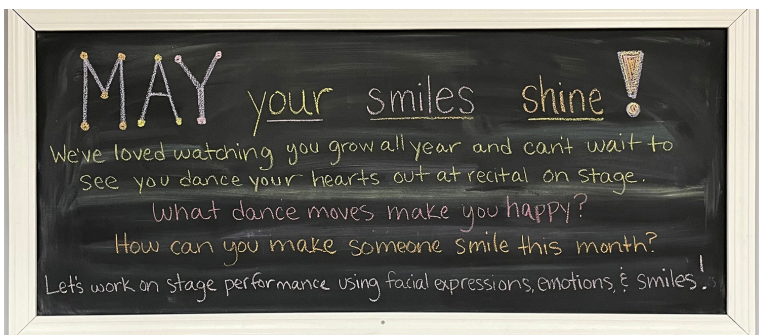 MAY your smiles shine!
We've loved watching you grow all year and can't wait to
see you dance your hearts out at recital on stage.
What dance moves make you happy?
How can you make someone smile this month?
Let's work on stage performance using facial expressions, emotions, & smiles!